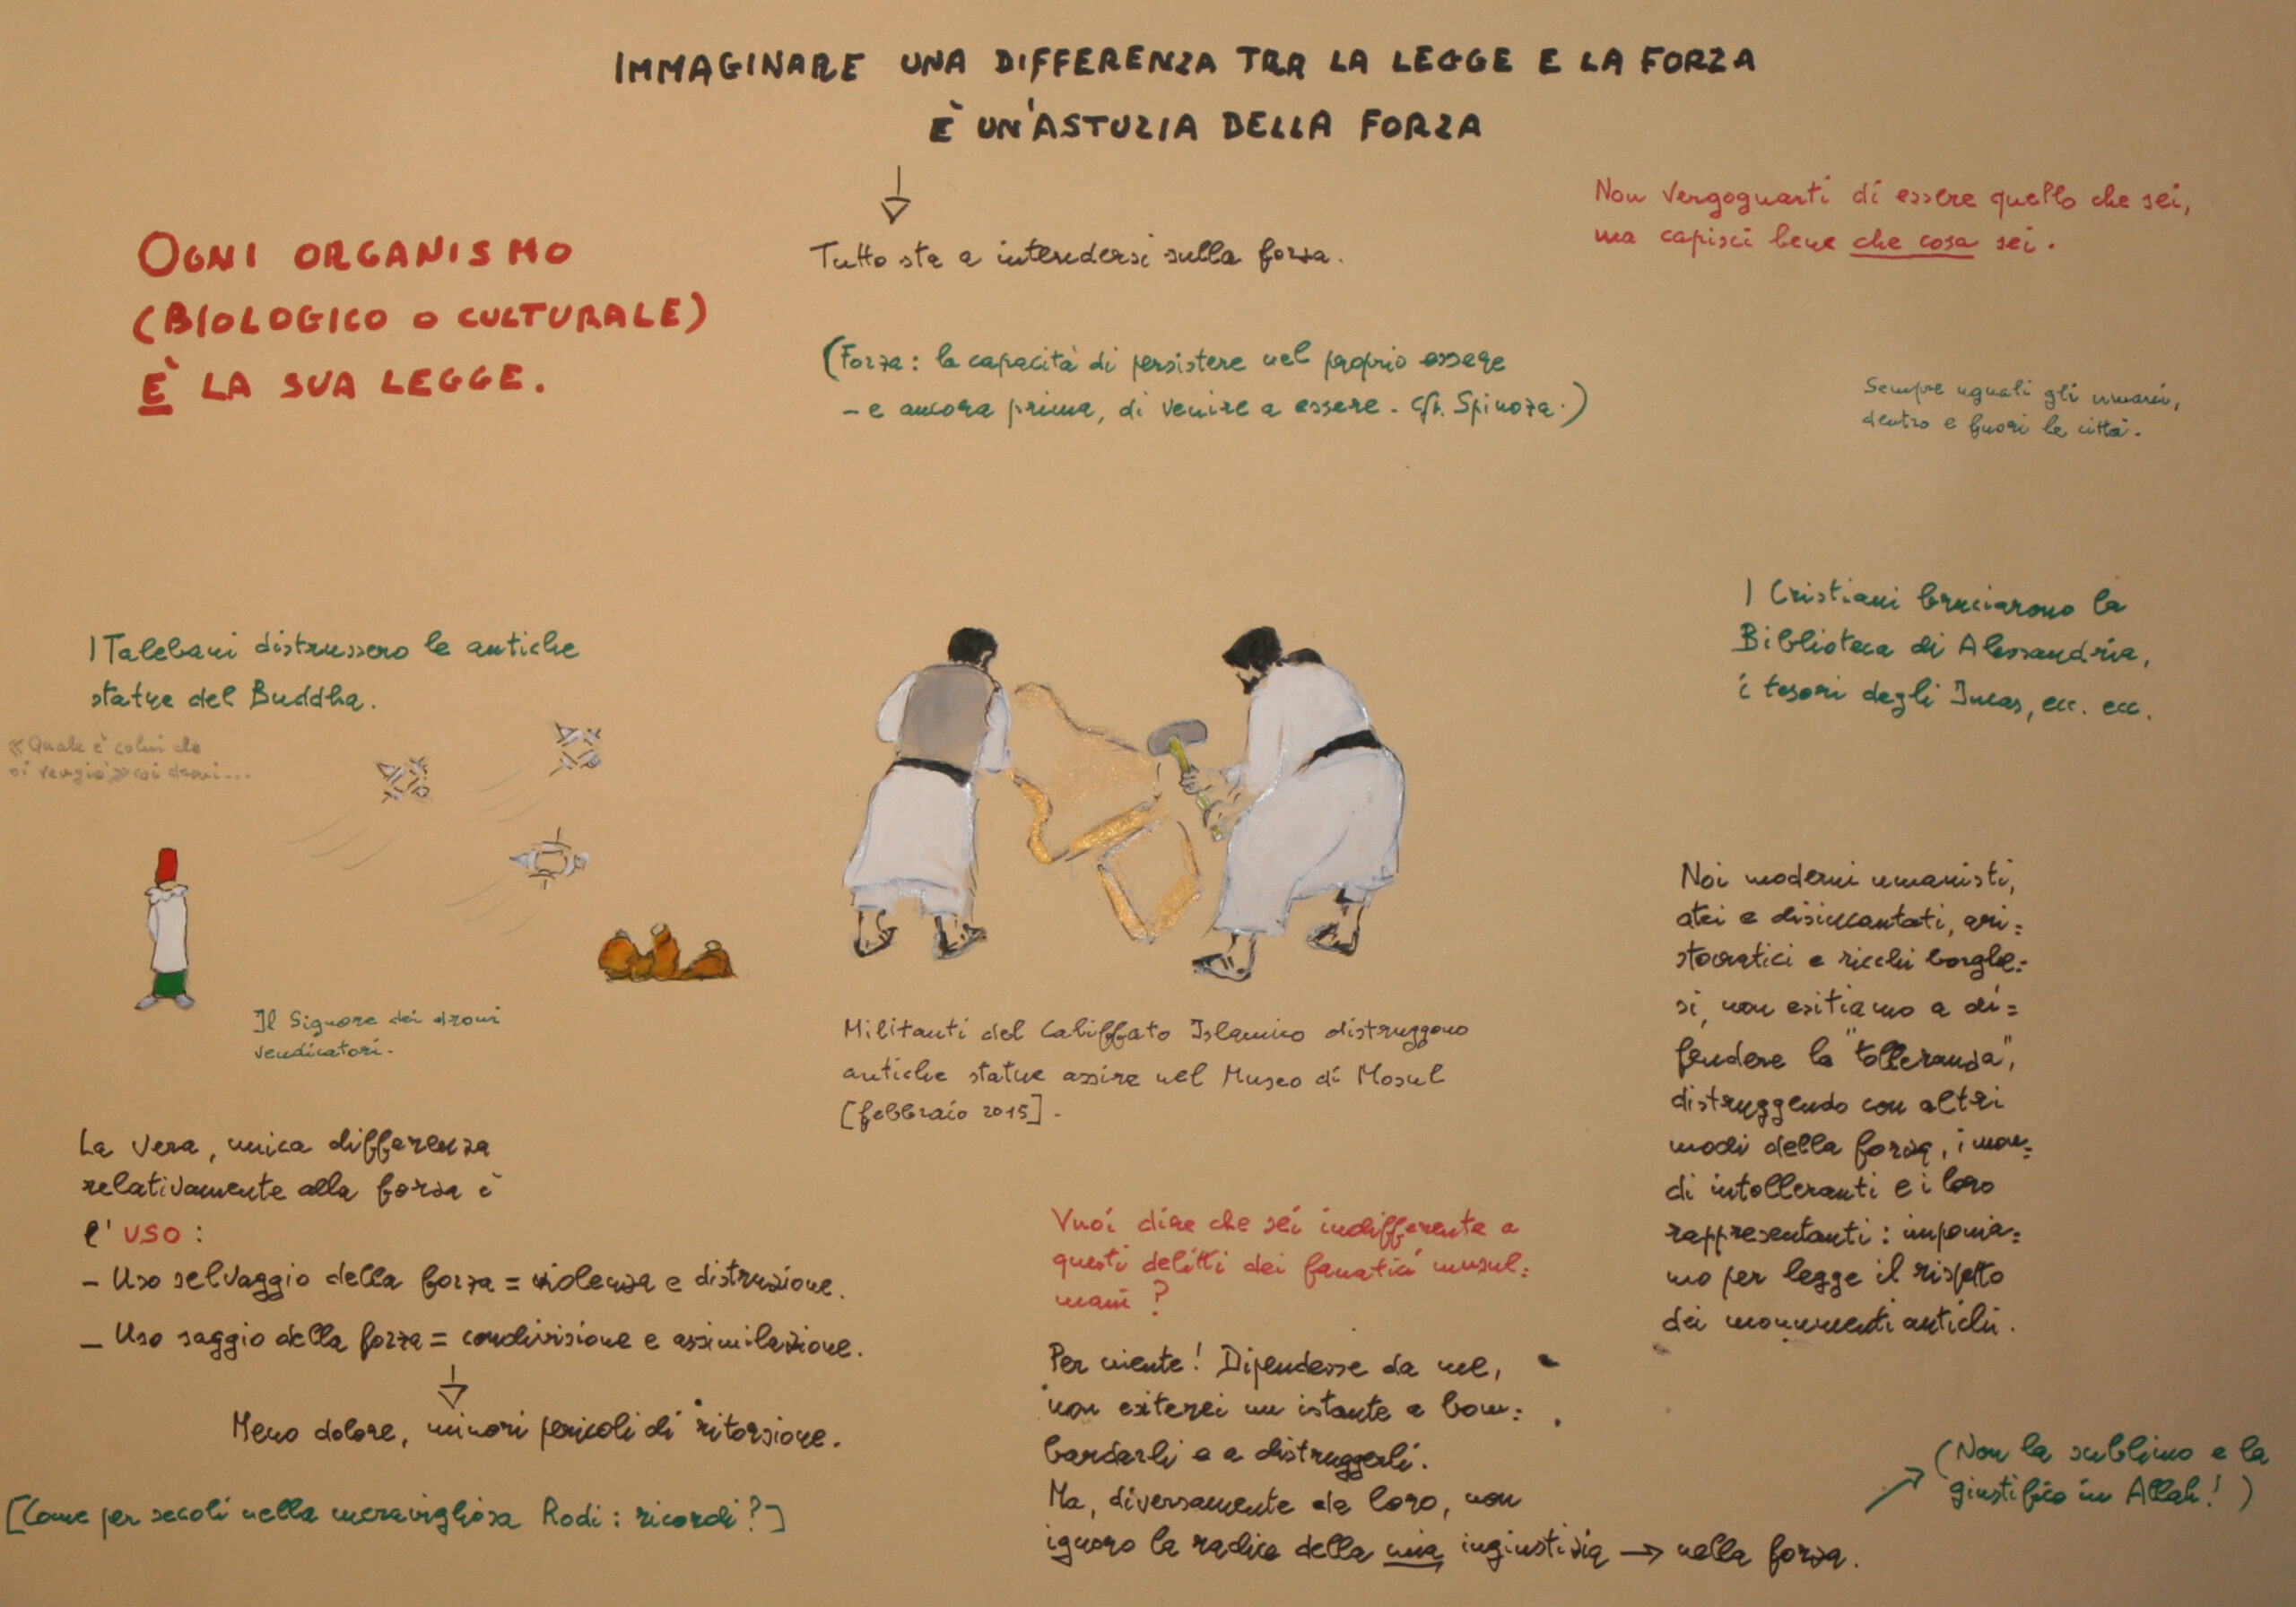 IMMAGINARE UNA DIFFERENZA TRA LA LEGGE E LA FORZA
È UN'ASTUZIA DELLA FORZA
OGNI ORGANISMO
(BIOLOGICO O CULTURALE)
È LA SUA LEGGE.
Tutto sta a intendersi sulla forza.
(Forza: la capacità di persistere nel proprio essere
- e ancora prima, di venire a essere. Cfr. Spinoza.)
Non vergognarti di essere quello che sei,
ma capisci bene che cosa sei.
Sempre uguali gli umani,
dentro e fuori le città.
I Talebani distrussero le antiche
statue del Buddha.
«Quale è colui che
si vengiò» coi droni...
Il Signore dei droni
vendicatori.
I Cristiani bruciarono la
Biblioteca di Alessandria,
i tesori degli Incas, ecc. ecc.
Militanti del Califfato Islamico distruggono
antiche statue assire nel Museo di Mosul
[febbraio 2015].
La vera, unica differenza
relativamente alla forza è
l'USO:
- Uso selvaggio della forza = violenza e distruzione.
- Uso saggio della forza = condivisione e assimilazione.
Meno dolore, minori pericoli di ritorsione.
[Come per secoli nella meravigliosa Rodi: ricordi?]
Vuoi dire che sei indifferente a
questi delitti dei fanatici musul=
mani?
Per niente! Dipendesse da me,
non esiterei un istante a bom=
bardarli e a distruggerli.
Ma, diversamente da loro, non
ignoro la radice della mia ingiustizia → nella forza.
Noi moderni umanisti,
atei e disincantati, ari=
stocratici e ricchi borghe=
si, non esitiamo a di=
fendere la "tolleranza",
distruggendo con altri
modi della forza, i mon=
di intolleranti e i loro
rappresentanti: imponia=
mo per legge il rispetto
dei monumenti antichi.
(Non la sublimo e la
giustifico in Allah!)